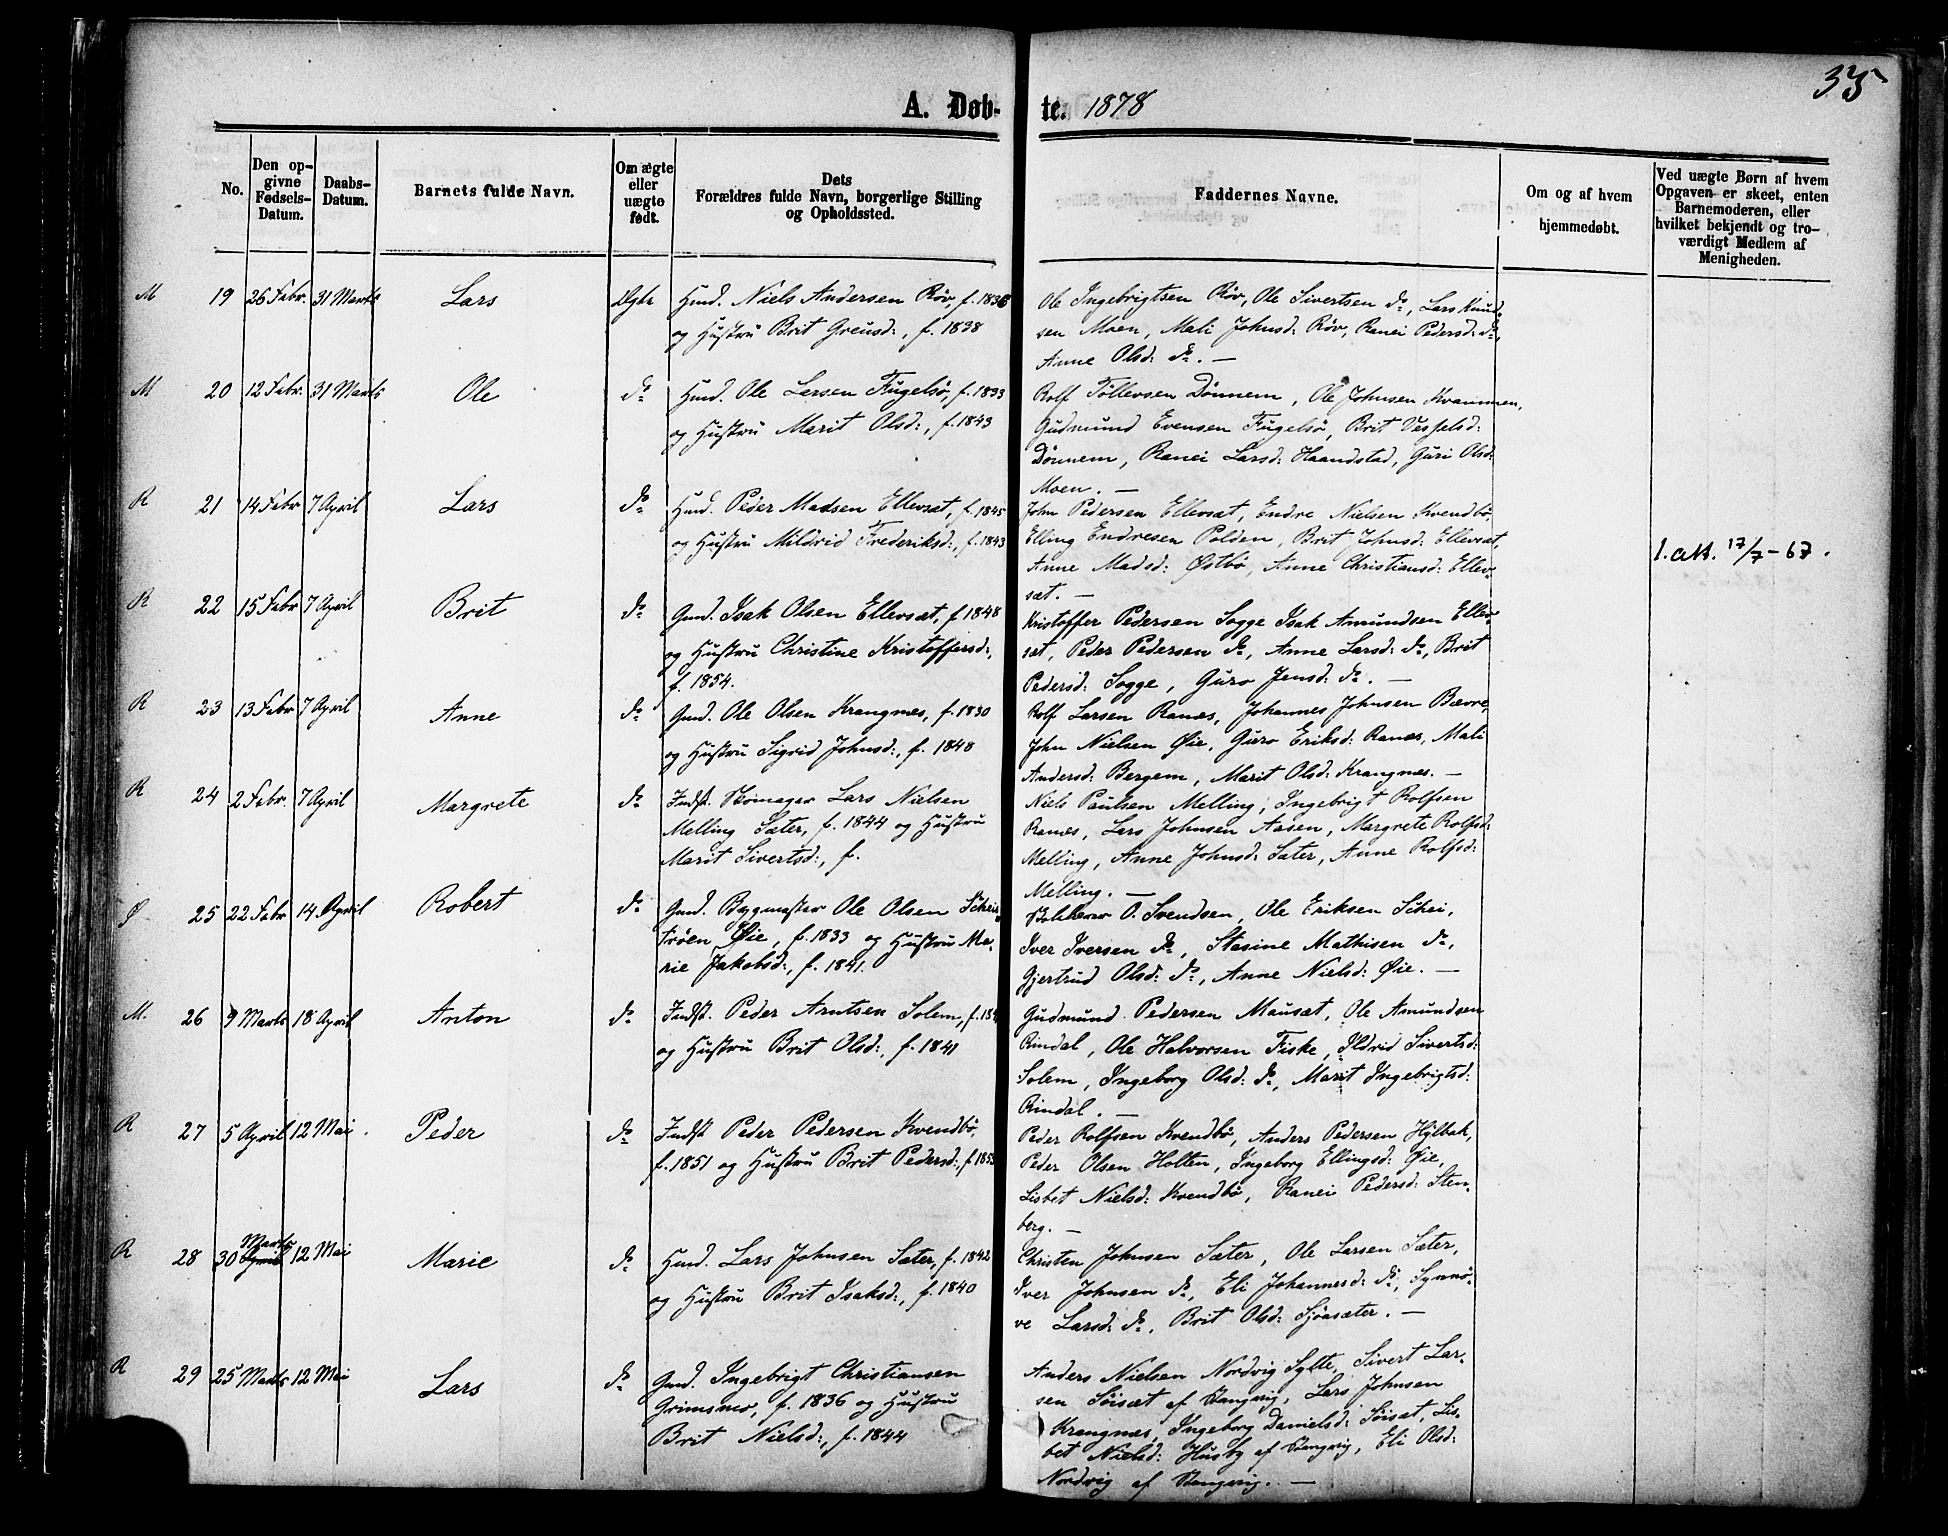 35
A. Døb-te. 1878
No.
Den op-
givne
Fødsels-
Datum.
Daabs-
Datum.
Barnets fulde Navn.
Om ægte
eller
uægte
født.
Dets
Forældres fulde Navn, borgerlige Stilling
og Opholdssted.
Faddernes Navne.
Om og af hvem
hjemmedøbt.
Ved uægte Børn af hvem
Opgaven er skeet, enten
Barnemoderen, eller
hvilket bekjendt og tro-
værdigt Medlem af
Menigheden.
M 19 26 Febr. 31 Marts Lars Ægte Gmd. Niels Andersen Røv, f. 1836
og Hustru Brit Greusd:, f. 1838
Ole Ingebrigtsen Røv, Ole Sivertsen do, Lars Knud-
sen Moen, Mali Johnsd: Røv, Ranei Pedersd: do,
Anne Olsd: do. —
M 20 12 Febr. 31 Marts Ole do Gmd. Ole Larsen Fugelsø, f. 1833
og Hustru Marit Olsd:, f. 1843
Rolf Tøllevsen Dønnem, Ole Johnsen Kvammen,
Gudmund Evensen Fugelsø, Brit Vesselsd:
Dønnem, Ranei Larsd: Haandstad, Guri Olsd:
Moen. —
R 21 14 Febr 7 April Lars do Gmd. Peder Madsen Ellevsæt, f. 1845
og Hustru Mildrid Frederiksd:, f. 1843
John Pedersen Ellevsæt, Endre Nielsen Kvendbø,
Elling Endresen Polden, Brit Johnsd: Ellevsæt,
Anne Madsd: Østbø, Anne Christiansd: Ellev-
sæt. —
1. att. 17/7-67.
R 22 15 Febr 7 April Brit do Gmd. Isak Olsen Ellevsæt, f 1848
og Hustru Christine Kristoffersd:,
f. 1854.
Kristoffer Pedersen Sogge Isak Amundsen Ellev-
sæt, Peder Pedersen do, Anne Larsd: do, Brit
Pedersd: Sogge, Guro Jensd: do. —
R 23 13 Febr 7 April Anne do Gmd. Ole Olsen Krangnæs, f. 1830
og Hustru Sigrid Johnsd:, f. 1848
Rolf Larsen Ranæs, Johannes Johnsen Bævre,
John Nielsen Øie, Guro Eriksd: Ranæs, Mali
Andersd: Bergem, Marit Olsd: Krangnæs. —
R 24 2 Febr. 7 April Margrete do Indst. Skomager Lars Nielsen
Melling Sæter, f. 1844 og Hustru
Marit Sivertsd:, f.
Niels Paulsen Melling, Ingebrigt Rolfsen
Ranæs, Lars Johnsen Aasen, Margrete Rolfsd:
Melling, Anne Johnsd: Sæter, Anne Rolfsd:
Melling. —
Ø 25 22 Febr 14 April Robert do Gmd. Bygmester Ole Olsen Schei-
trøen Øie, f. 1833 og Hustru Ma-
rie Jakobsd:, f. 1841.
O. Svendsen, Ole Eriksen Schei,
Iver Iversen do, Stasine Mathisen do,
Gjertrud Olsd: do, Anne Nielsd: Øie. —
M. 26 9 Marts 18 April Anton do Indst. Peder Arntsen Solem, f. 184
og Hustru Brit Olsd:, f. 1841
Gudmund Pedersen Mausæt, Ole Amundsen
Rindal, Ole Halvorsen Fiske, Ildrid Sivertsd:
Solem, Ingeborg Olsd: do, Marit Ingebrigtsd:
Rindal. —
R 27 5 April 12 Mai. Peder do Indst Peder Pedersen Kvendbø,
f. 1851 og Hustru Brit Pedersd:, f 185
Peder Rolfsen Kvendbø, Anders Pedersen Hylbak,
Peder Olsen Holten, Ingeborg Ellingsd: Øie,
Lisbet Nielsd: Kvendbø, Ranei Pedersd: Sten-
berg. —
R 28 30 Marts April 12 Mai Marie do Gmd. Lars Johnsen Sæter, f. 1842
og Hustru Brit Isaksd:, f. 1840
Christen Johnsen Sæter, Ole Larsen Sæter,
Iver Johnsen do, Eli Johannesd: do, Synnø-
ve Larsd: do, Brit Olsd: Sjøasæter. —
R 29 25 Marts 12 Mai Lars do Gmd. Ingebrigt Christiansen
Grimsmo, f. 1836 og Hustru
Brit Nielsd:, f. 1844
Anders Nielsen Nordvig Sylte, Sivert Lar-
sen Søisæt af Stangvig, Lars Johnsen
Krangnæs, Ingeborg Danielsd: Søisæt, Lis-
bet Nielsd: Husby af Stangvig, Eli Olsd:
Nordvig af Stangvig. —